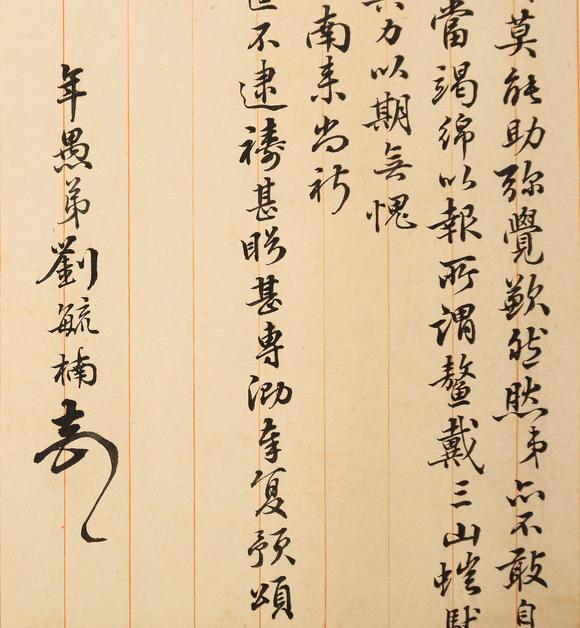 莫能助弥覺歉然然弟亦不敢自
當竭綿以報所謂螯戴三山
力以期無愧
南来尚祈
不逮禱甚盼甚專泐奉复預頌
年愚弟劉毓楠